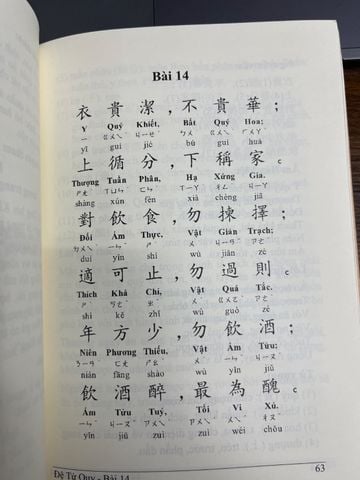 Bài 14
衣貴潔,不貴華;
Y Quý Khiết, Bất Quý Hoa;
ㄧ ㄍㄨㄟˋ ㄐㄧㄝˊ ㄅㄨˊ ㄍㄨㄟˋ ㄏㄨㄚˊ
yī guì jié bú guì huá
上循分,下稱家。
Thượng Tuần Phân, Hạ Xứng Gia.
ㄕㄤˋ ㄒㄩㄣˊ ㄈㄣˋ ㄒㄧㄚˋ ㄔㄥˋ ㄐㄧㄚ
shàng xún fèn xià chèng jiā
對飲食,勿揀擇;
Đối Ẩm Thực, Vật Giản Trạch;
ㄉㄨㄟˋ ㄧㄣˇ ㄕˊ ㄨˋ ㄐㄧㄢˇ ㄗㄜˊ
duì yǐn shí wù jiǎn zé
適可止,勿過則。
Thích Khả Chỉ, Vật Quá Tắc.
ㄕˋ ㄎㄜˇ ㄓˇ ㄨˋ ㄍㄨㄛˋ ㄗㄜˊ
shì kě zhǐ wù guò zé
年方少,勿飲酒;
Niên Phương Thiếu, Vật Ẩm Tửu;
ㄋㄧㄢˊ ㄈㄤ ㄕㄠˋ ㄨˋ ㄧㄣˇ ㄐㄧㄡˇ
nián fāng shào wù yǐn jiǔ
飲酒醉,最為醜。
Ẩm Tửu Tuý, Tối Vi Xú.
ㄧㄣˇ ㄐㄧㄡˇ ㄗㄨㄟˋ ㄗㄨㄟˋ ㄨㄟˊ ㄔㄡˇ
yǐn jiǔ zuì zuì wéi chǒu
Đệ Tử Quy - Bài 14
63